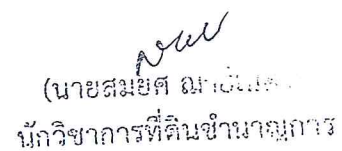 (นายสมยศ
นักวิชาการที่ดินชำนาญการ